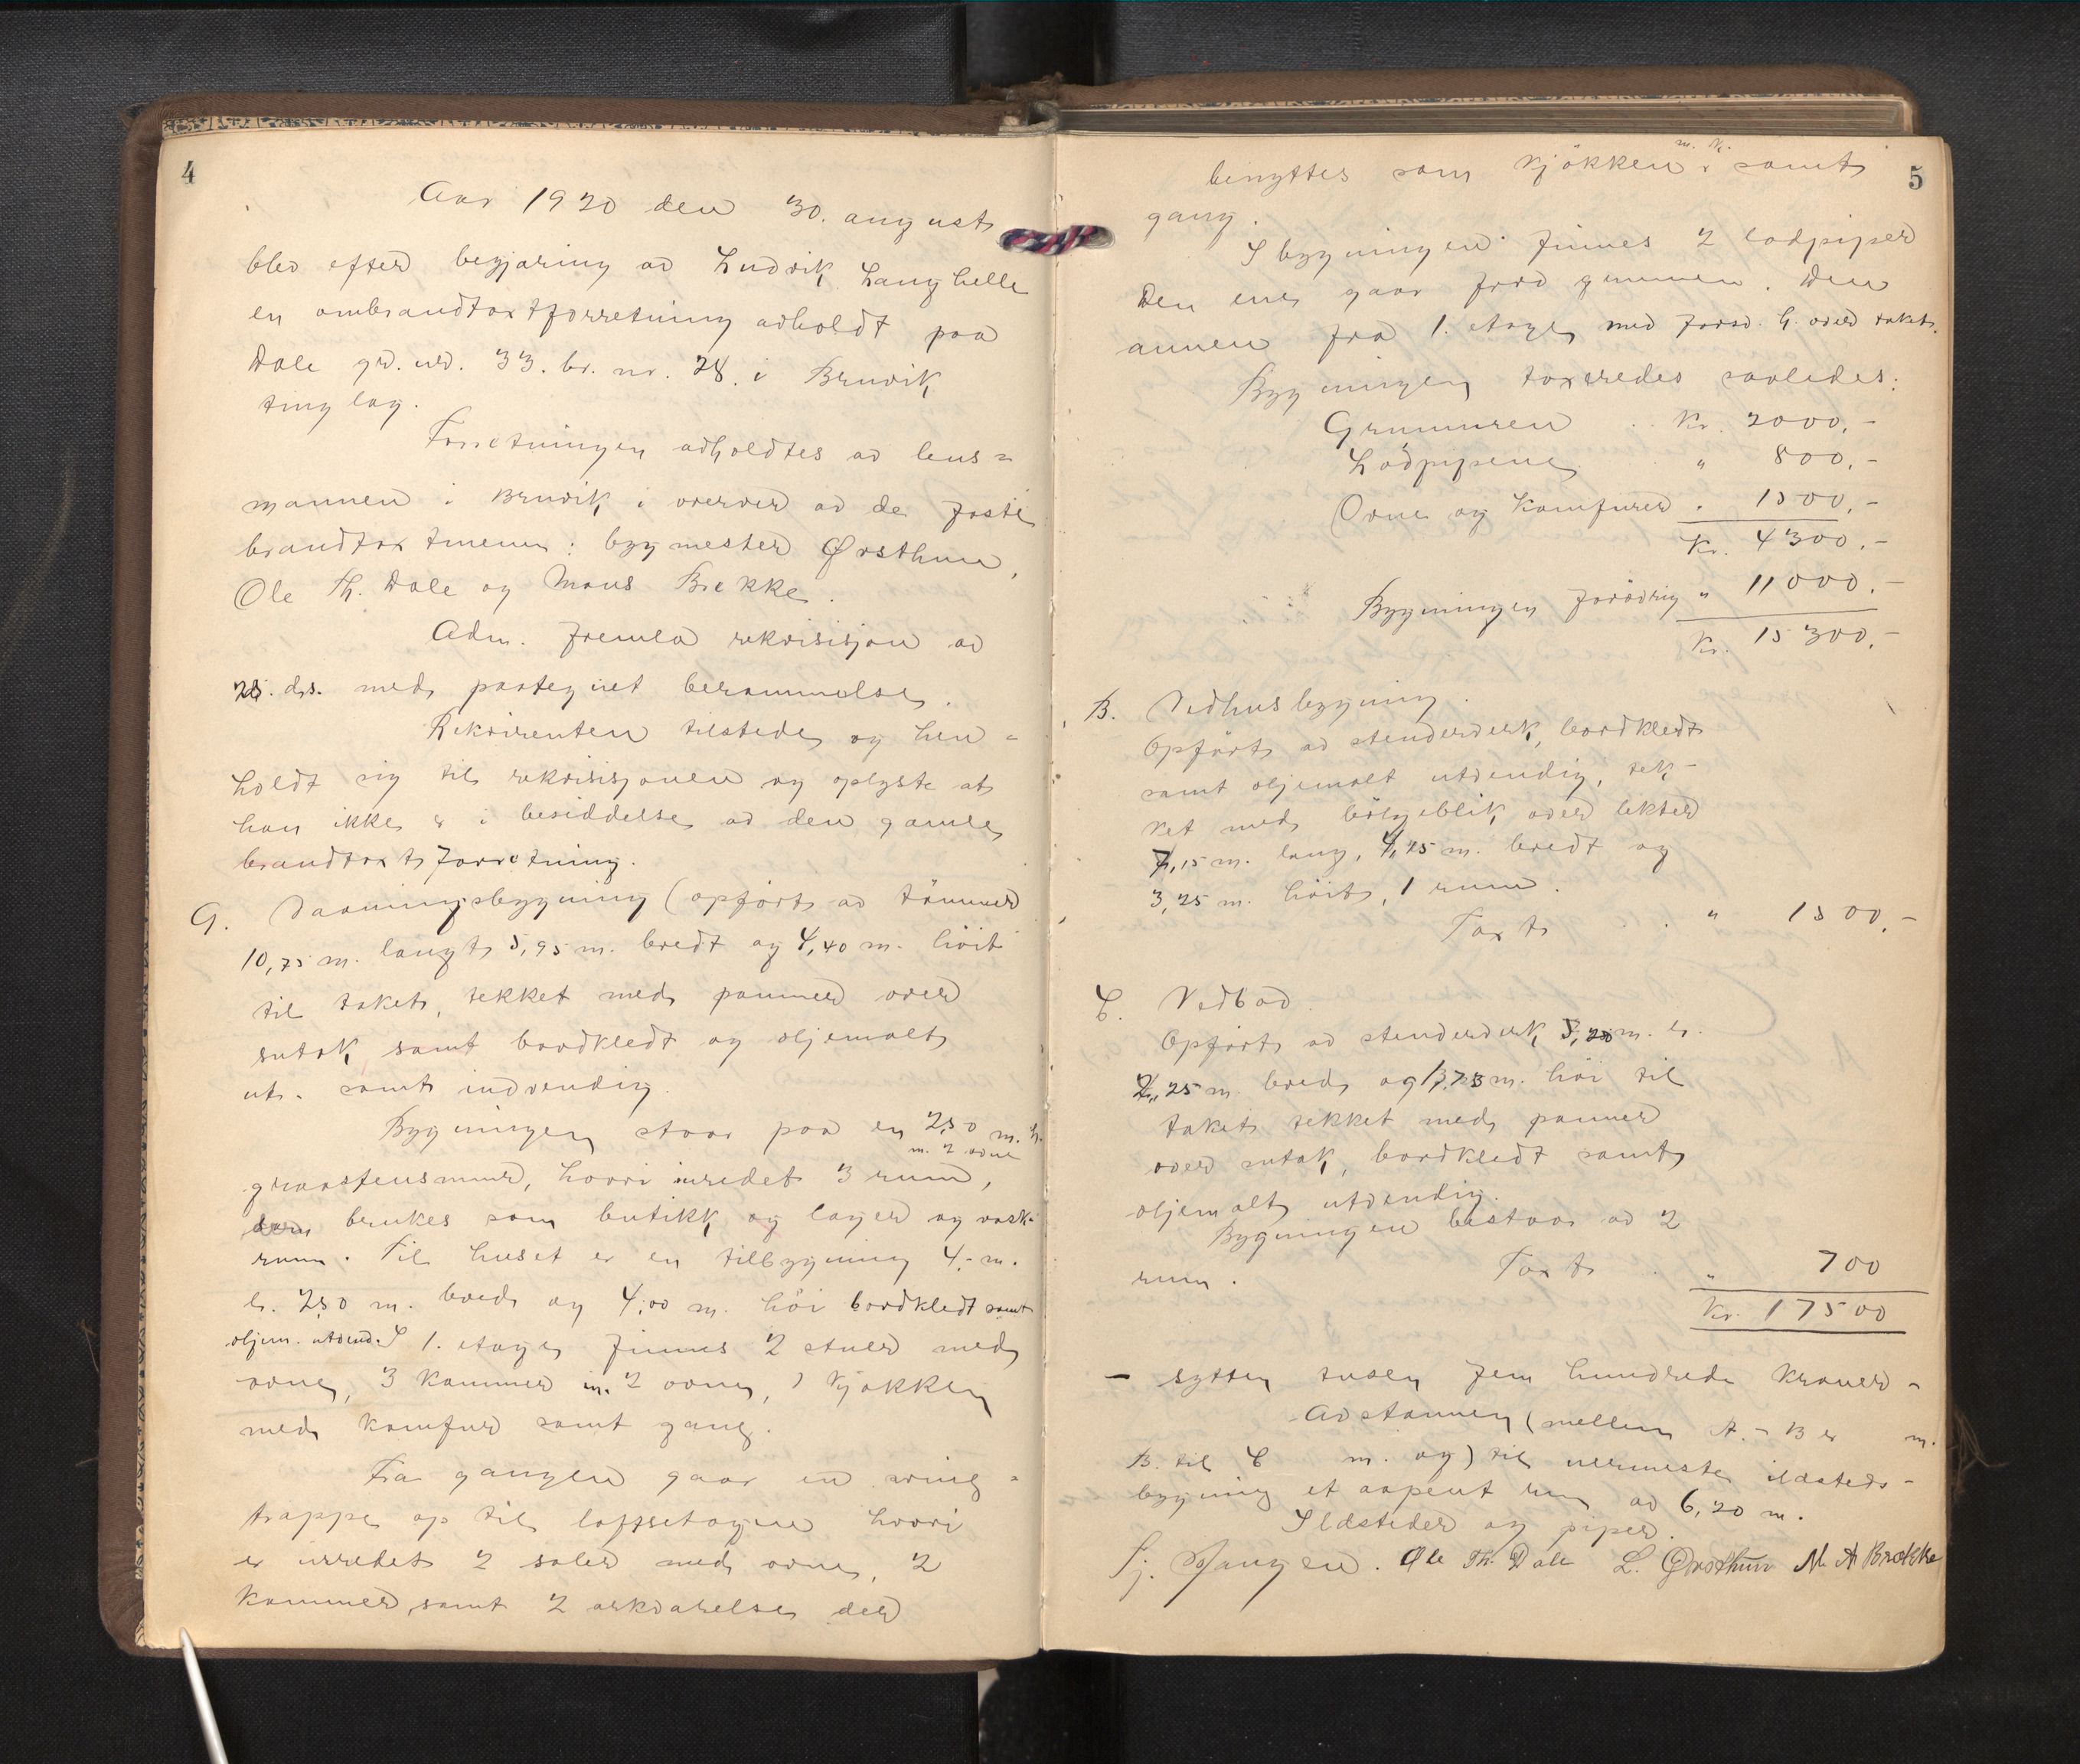 4
Aar 1920 den 30. august
blev efter begjæring av Ludvik Langhelle
en ombrandtaxtforretning avholdt paa
Dale gr. nr. 33. br. nr. 28. i Bruvik
tinglag.
Forretningen avholdtes av lens=
mannen i Bruvik i overvær av de faste
brandtaxtmenn: bygmester Ørsthun,
Ole Th. Dale og Mons Brekke.
Adm. fremla rekvisisjon av
25. ds. med paategnet berammelse.
Rekvirenten tilstede og hen=
holdt sig til rekvisisjonen og oplyste at
han ikke er i besiddelse av den gamle
brandtaxtforretning.
Vaaningsbygning (opført av tømmer
10,75 m. langt 5,95 m. bredt og 4,40 m. høit
til taket, tekket med panner over
sutak samt bordkledt og oljemalt
ut- samt indvendig.
Bygningen staar paa en 2,50 m. h.
m. 2 ovne
graastensmur, hvori inredet 3 rum,
som brukes som butikk og lager og vask-
rum. Til huset er en tilbygning 4,- m.
l. 2,50 m. bred og 4,00 m. høi bordkledt samt
oljem. utvend. I 1. etage finnes 2 stuer med
ovne, 3 kammer m. 2 ovne, 1 kjøkken
med komfur samt gang.
Fra gangen gaar en sving=
trappe op til loftsetagen hvori
er inredet 2 saler med ovne, 2
kammer, samt 2 arkværelse der
5
m. k.
benyttes som kjøkken samt
gang.
I bygningen finnes 2 lodpiper
Den ene gaar fra grunnen. Den
annen fra 1. etage med forsv. h. over taket.
Bygningen taxeredes saaledes:
Grunmuren .. Kr. 2000,-
Lodpipene " 800,-
Ovne og Komfurer " 1500,-
Kr. 4300,-
Bygningen forøvrig " 11000,-
Kr. 15300,-
B. Vedhusbygning.
Opført av stenderverk, bordkledt
samt oljemalt utvendig, tek-
ket med bølgeblik over lekter
7,15 m. lang, 4,25 m. bredt og
3,25 m. høit, 1 rum.
Taxt . . " 1500,-
C. Vedbod
Opført av stenderverk 5,20 m. l.
2,25 m. bred og 1,75 m. høi til
taket tekket med panner
over sutak, bordkledt samt
oljemalt utvendig.
Bygningen bestaar av 2
rum. Taxt . " 700
Kr. 17500
- sytten tusen fem hundrede kroner -
Avstannen (mellem A. - B er m.
B. til C m. og) til nermeste ildsteds-
bygning et aapent rum av 6,20 m.
Ildsteder og piper.
Ole Th. Dale L. Ørsthun M A Brekke